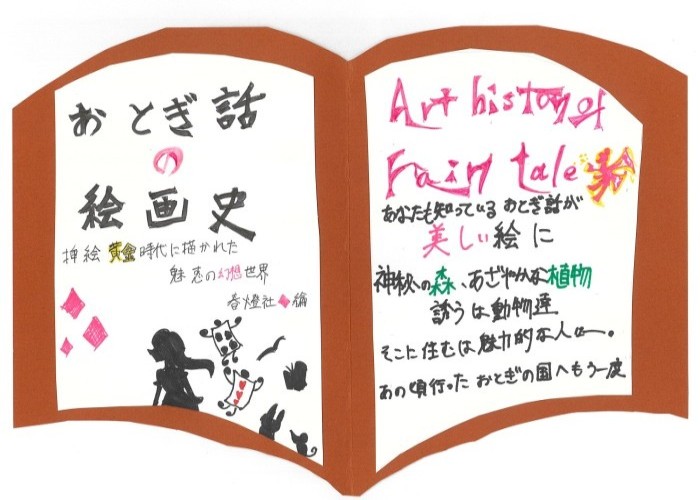 おとぎ話
の
絵画史
挿絵黄金時代に描かれた
魅惑の幻想世界
春燈社 編
Art history of
Fairy tale
あなたも知っている おとぎ話が
美しい絵に
神秘の森、あざやかな植物
誘うは動物達
そこに住むは魅力的な人々。
あの頃行った おとぎの国へもう一度